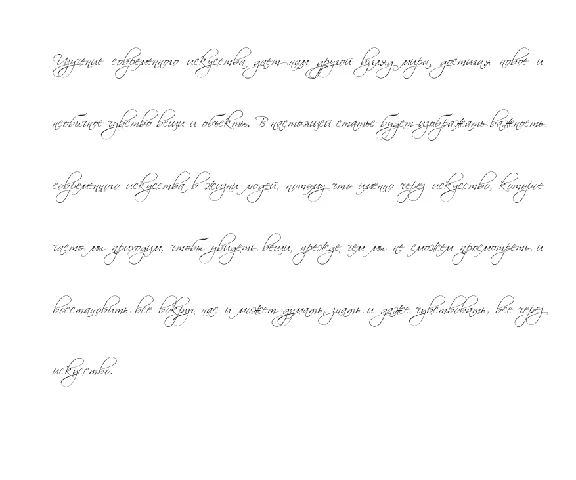 Изучение современного искусства дает нам другой взгляд мира, достигая новое и
необычное чувство вещи и объекть. В настоящей статье будет изображать важность
современного искусства в жизни людей, потому что именно через искусство, которые
часто мы приходим, чтобы увидеть вещи, прежде чем мы не сможем просмотреть и
восстановить все вокруг нас и может думать, знать и даже чувствовать, все через
искусство.